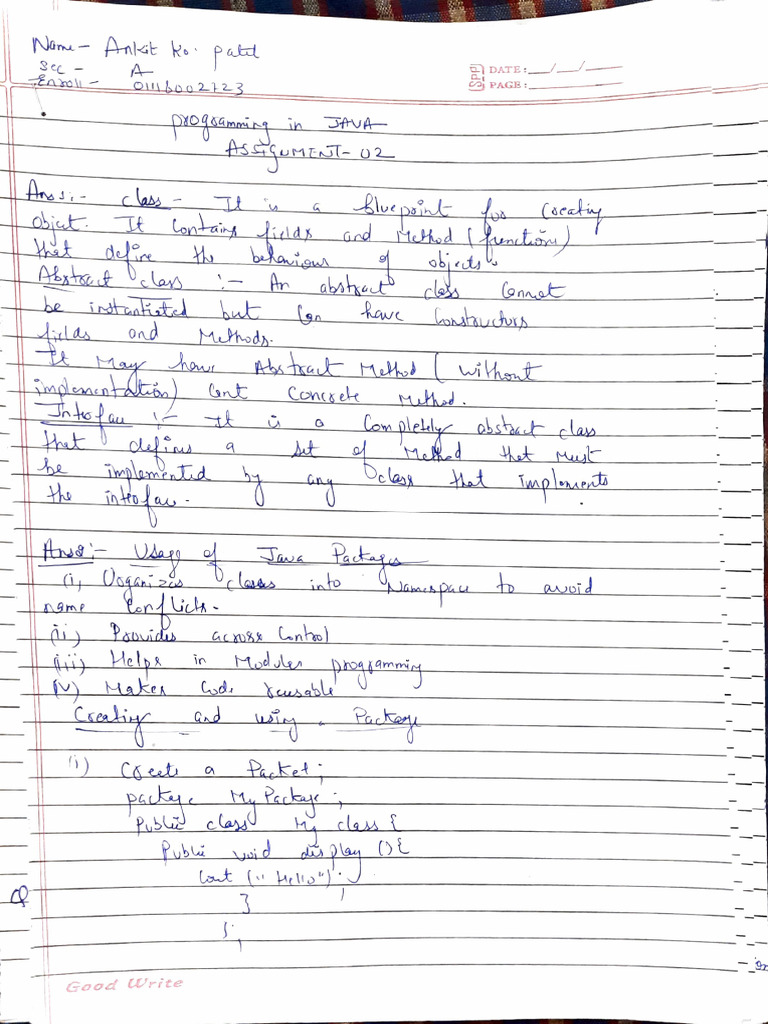 Name - Ankit Kr. patel
Sec - A
Enroll - 01116002723
SPP DATE: __/__/__
PAGE:
programming in JAVA
ASSIGNMENT-02
Ans1:- class - It is a Bluepoint for Creating
Object. It Contains fields and Method (functions)
that define the behaviour of objects.
Abstract class :- An abstract class Cannot
be instantiated but Can have Constructors
fields and Methods.
It May have Abstract Method (without
implementation) Concrete Method.
Interface :- It is a Completely abstract class
that defines a set of Method that Must
be implemented by any class that implements
the interface.
Ans2:- Usage of Java Packages
(i) Organizes classes into Namespace to avoid
name Conflicts.
(ii) Provides across Control
(iii) Helps in Modules programming
(iv) Makes Code reusable
Creating and using a Package
(i) Create a Packet;
package My Package;
Public class My class {
Public void display () {
Cout ("Hello");
}
};
Good Write